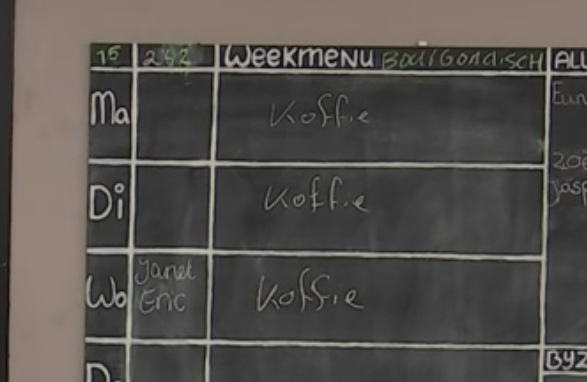 15 242 Weekmenu Bourgondisch ALL
Ma Koffie Eun
Zoë
Jasp
Di Koffie
Wo Janet Eric Koffie
Do
BYZ